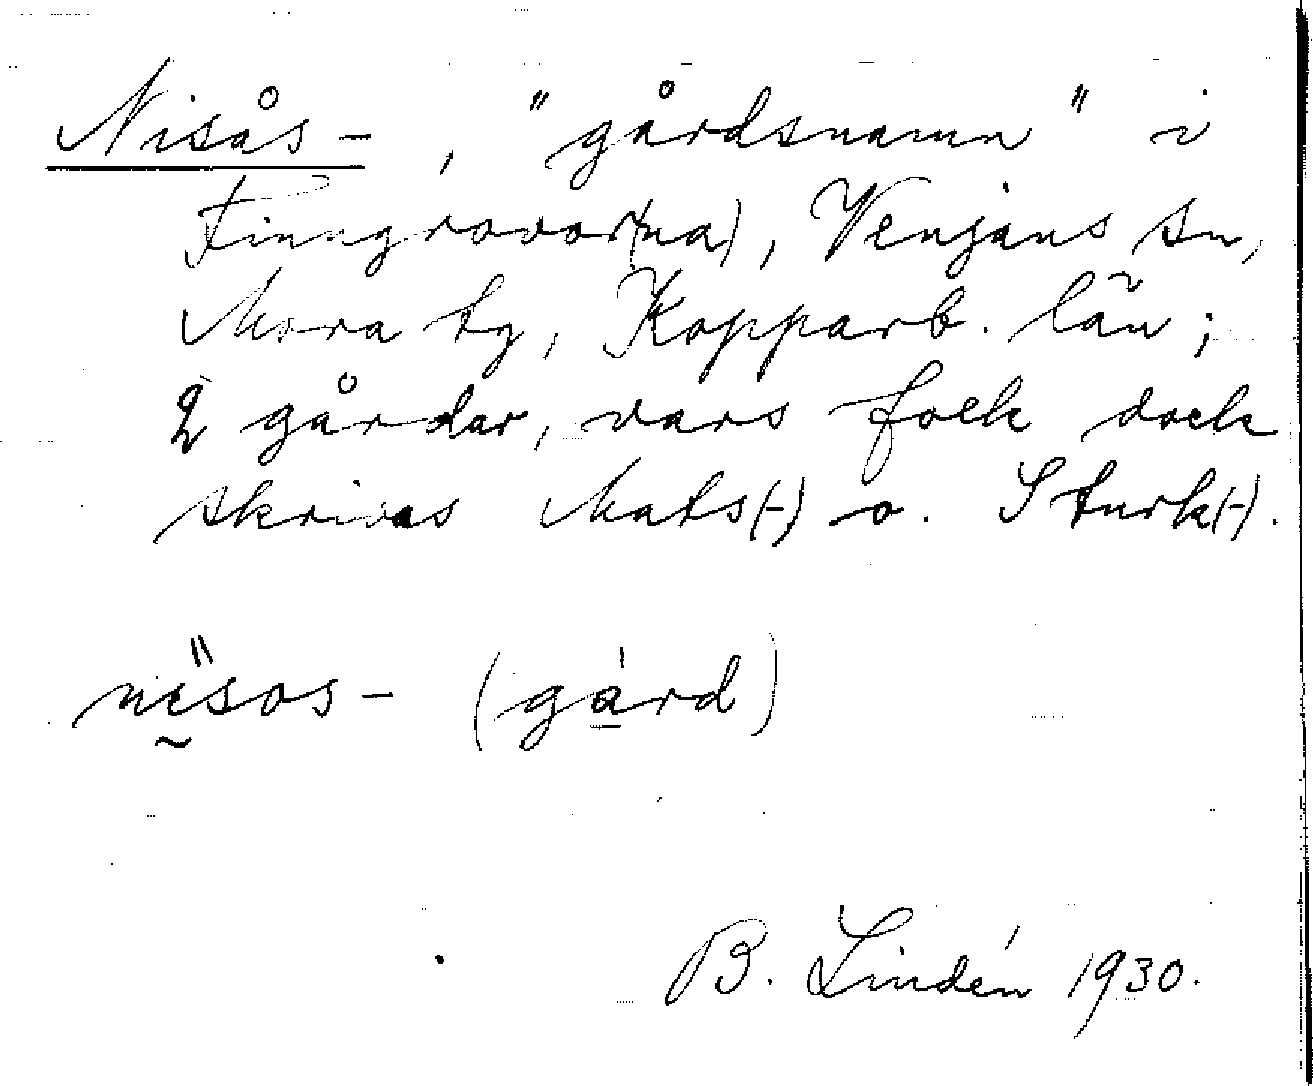 Nisås-, "gårdsnamn" i
Finngrovor(na), Venjans sn,
Mora tg, Kopparb. län;
2 gårdar, vars folk dock
skrivas Mats(-) o. Sturk(-).
nisos- (gård)
B. Lindén 1930.